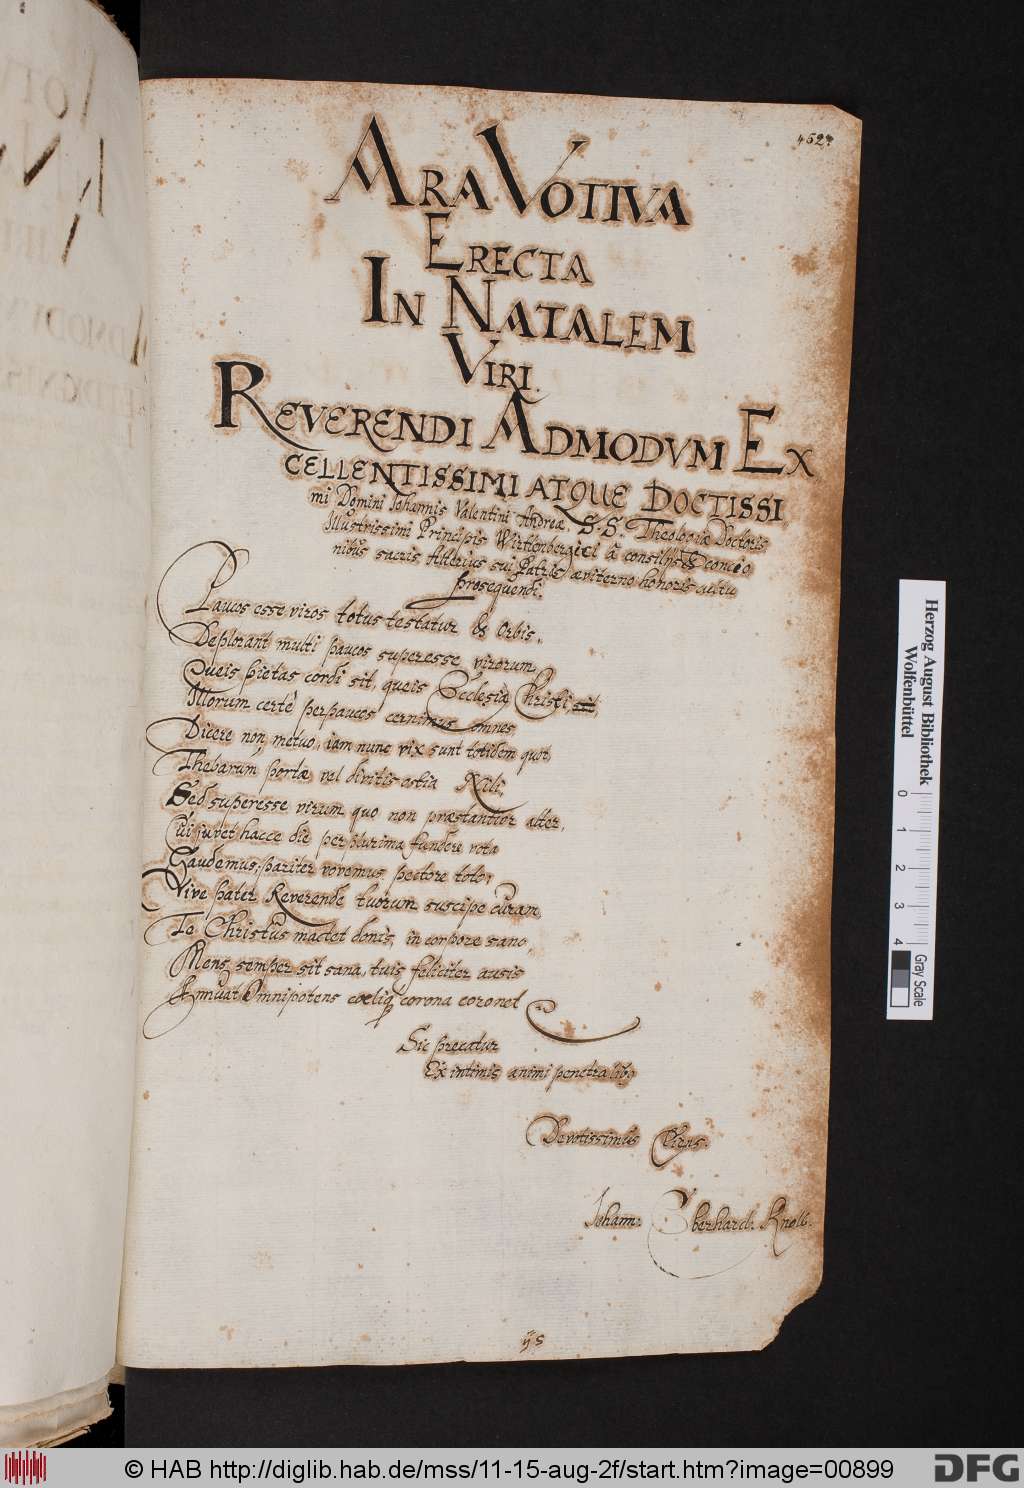 4627
ARA VOTIVA
ERECTA
IN NATALEM
VIRI.
REVERENDI ADMODVM EX
CELLENTISSIMI ATQUE DOCTISSI
mi Domini Johannis Valentini Andreæ, S.S. Theologiæ Doctoris
Illustrissimi Principis Wirttenbergici à consiliis & concio
nibus sacris, Alterius sui Patris æviterno honoris cultu
prosequendi.
Paucos esse viros totus testatur & Orbis.
Deplorant multi paucos superesse virorum,
Queis pietas cordi sit, queis Ecclesiæ Christi,
Illorum certè perpaucos cernimus omnes,
Dicere non metuo, iam nunc vix sunt totidem quot
Thebarum portæ vel divitis ostia Nili,
Sed superesse virum quo non præstantior alter,
Cui juvet hacce die perplurima fundere vota
Gaudemus, pariter vovemus pectore toto,
Vive pater Reverende tuorum suscipe curam,
Te Christus mactet donis, in corpore sano,
Mens semper sit sana, tuis feliciter ausis
Annuat Omnipotens cœliq corona coronet
Sic precatur
Ex intimis animi penetralib9
Devotissimus Cliens.
Johann. Eberhard. Knoll.
ijs
Herzog August Bibliothek
Wolfenbüttel
0 1 2 3 4
Gray Scale
© HAB http://diglib.hab.de/mss/11-15-aug-2f/start.htm?image=00899
DFG